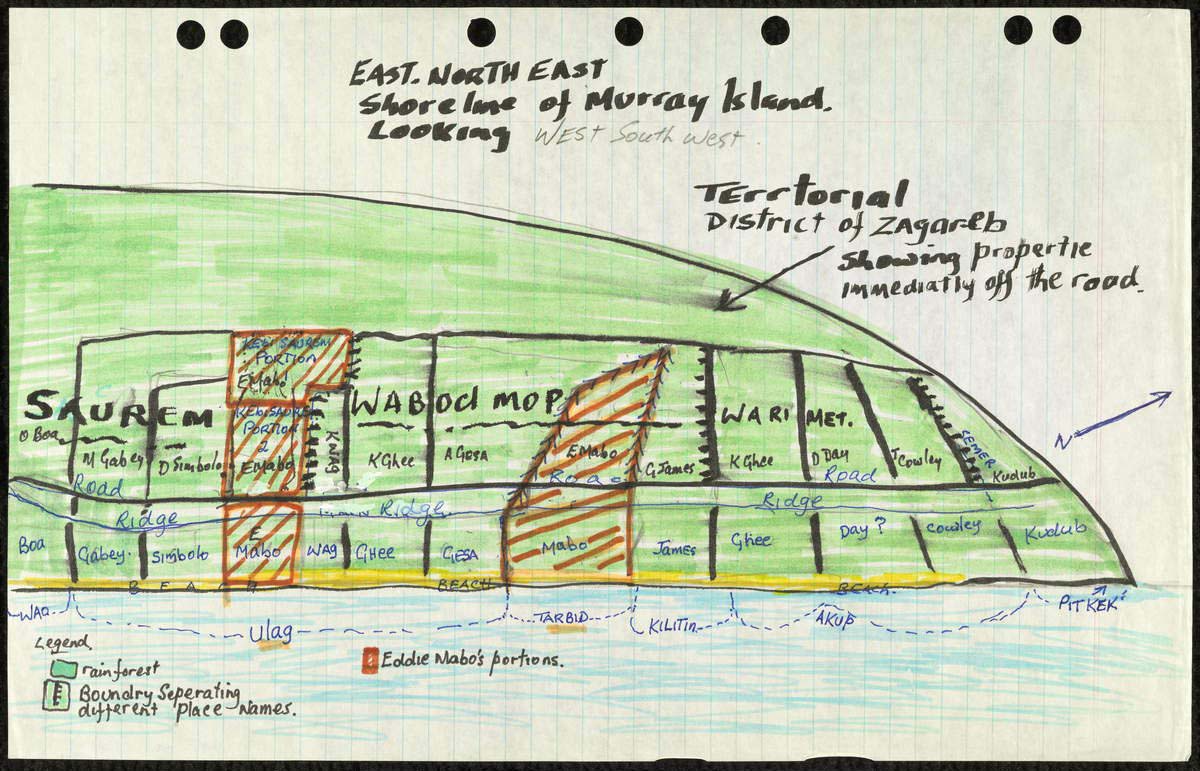 EAST. NORTH EAST
Shoreline of Murray Island.
Looking WEST South West.
TErrtorial
District of ZAgareb
Showing propertie
immediatly off the road.
KEBI SAUREM
PORTION
E Mabo
SAUREM
WABOd MOP
WARI MET.
KEBI SAUREM
PORTION
2
E Mabo
O Boa
M Gabey
D Simbolo
K Wag
K Ghee
A GESA
E Mabo
G James
K Ghee
D Day
J Cowley
SEMER
Kudub
N
Road
Road
Road
Ridge
Ridge.
Ridge
Boa
Gabey.
Simbolo
E
Mabo
WAG
GHEE
GESA
Mabo
James
Ghee
Day?
Cowley
Kudub
BEACH
BEACH
BEACH.
WAO
Ulag
TARBID
KILITIN
AKUP
PITKEK
Legend
rainforest
Boundry Seperating
different Place-Names.
Eddie Mabo's portions.